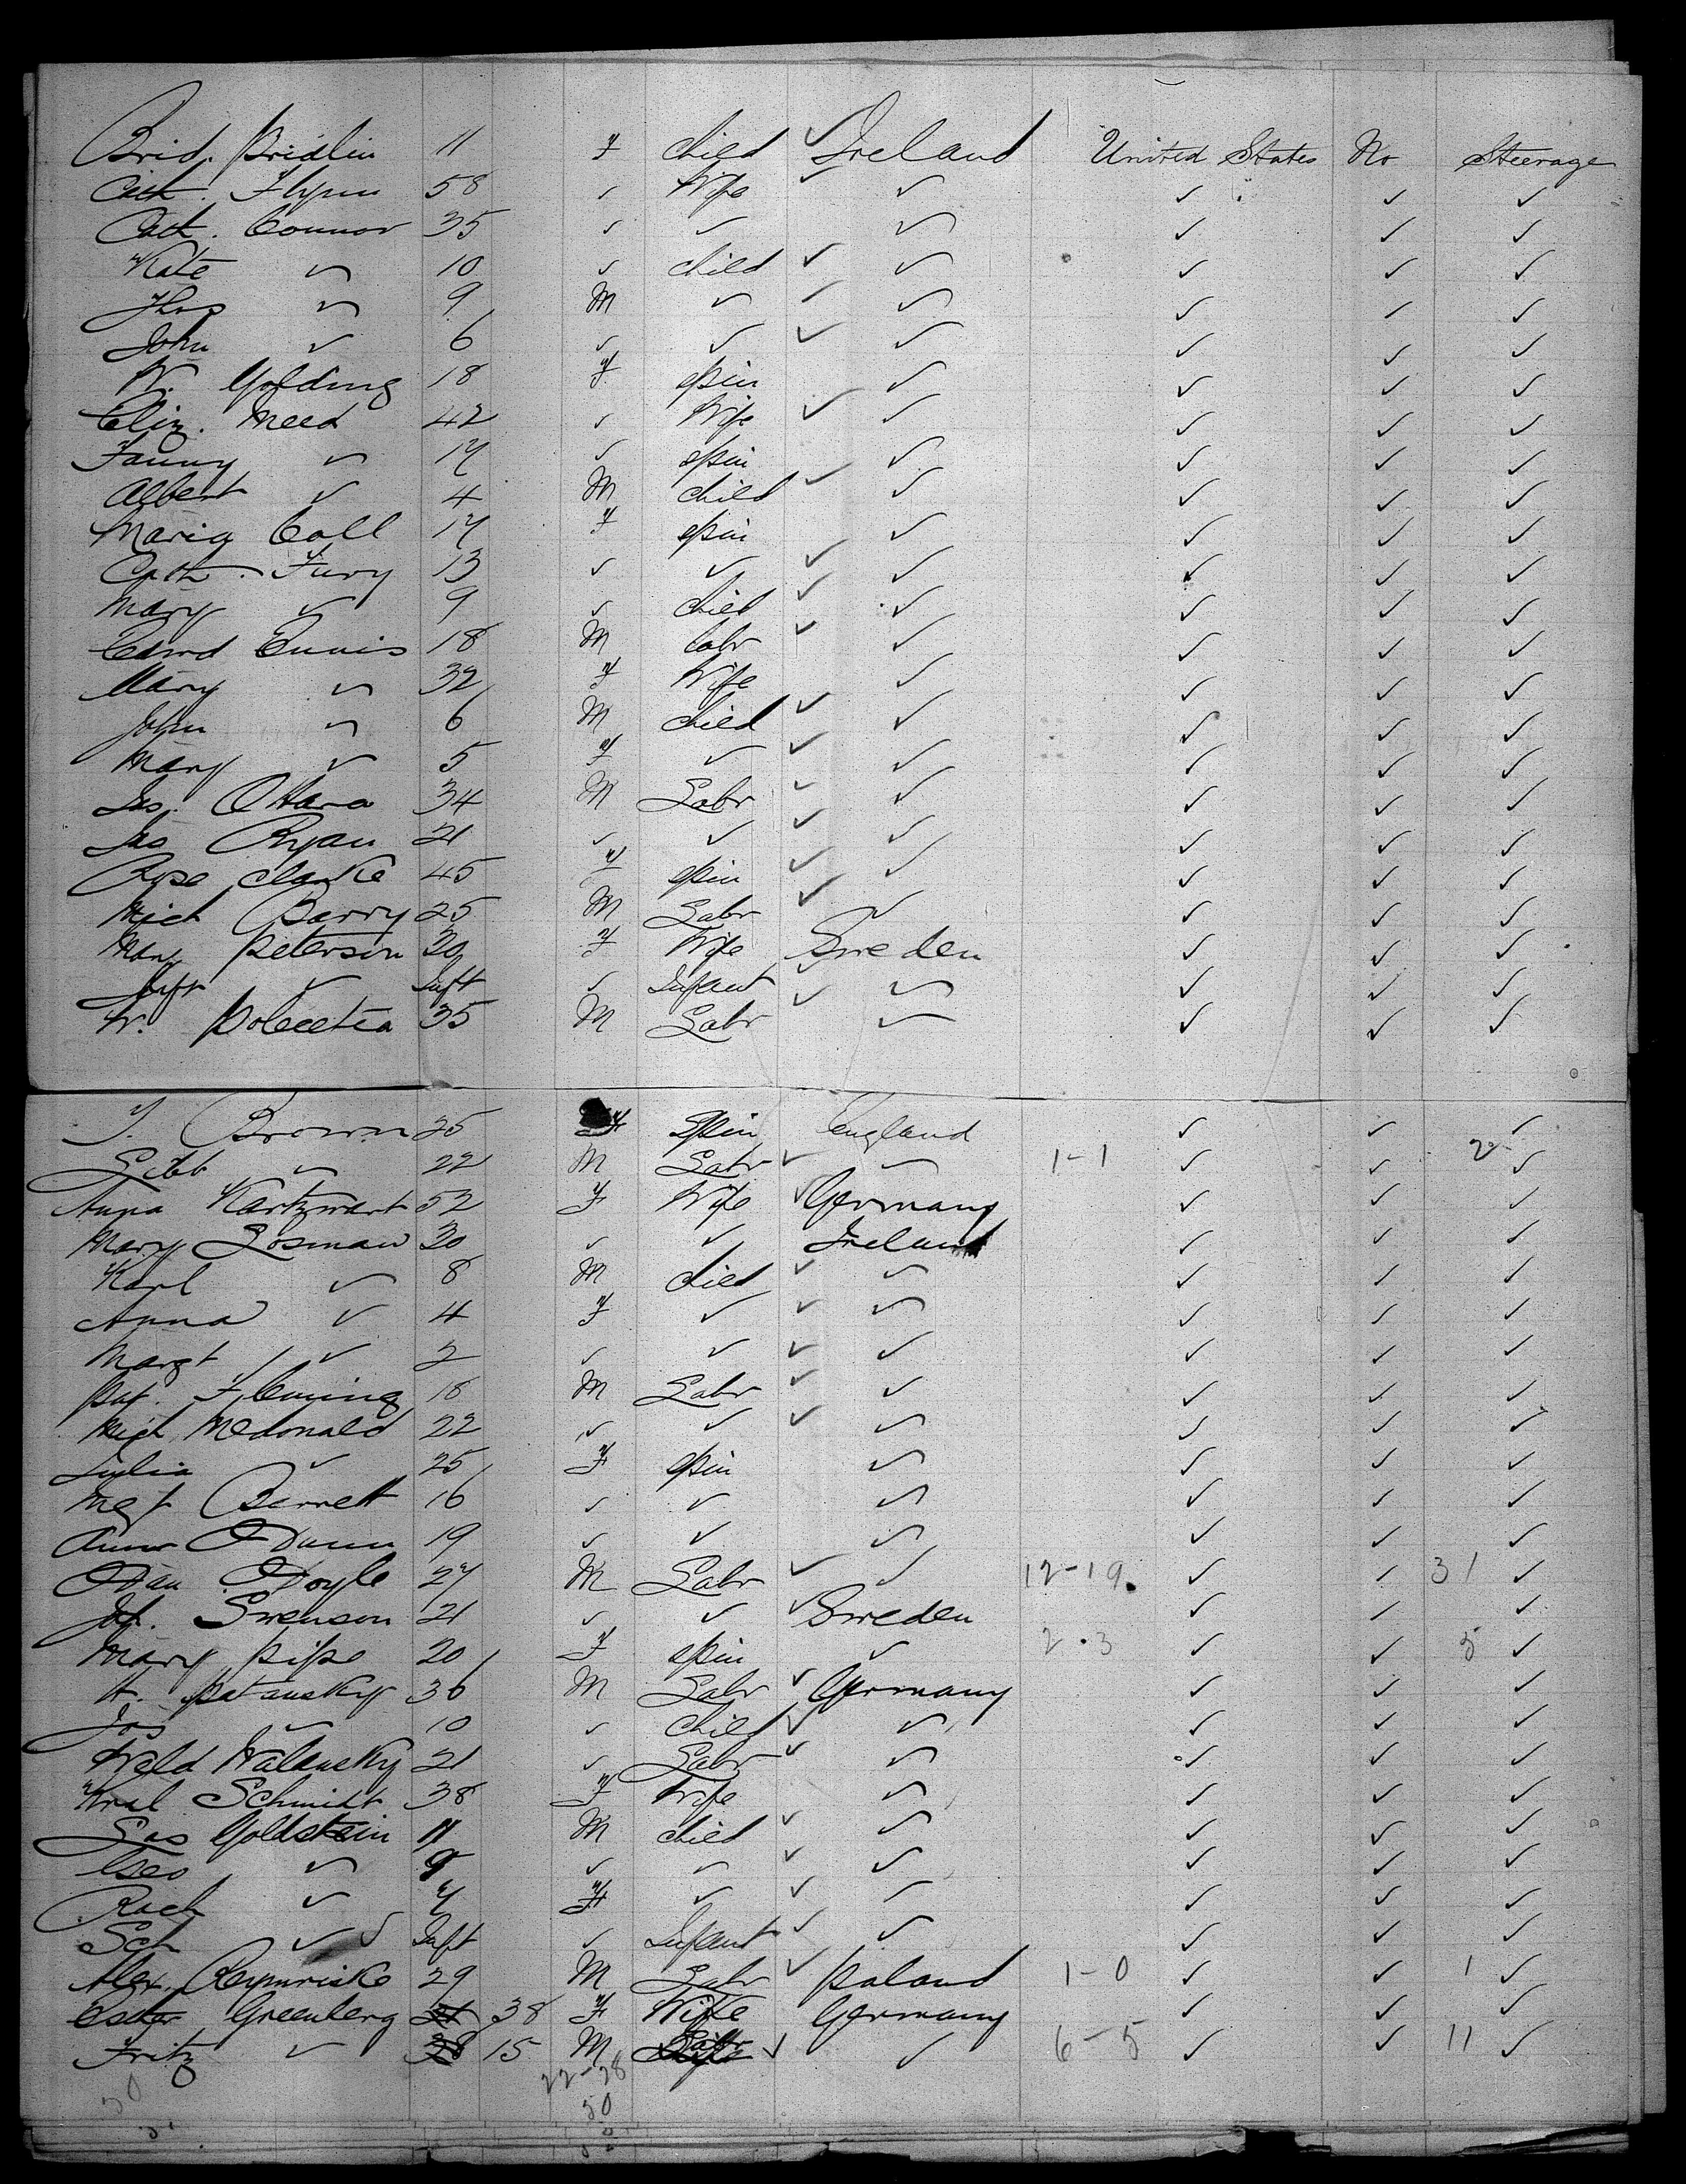 Brid. Bridlin 11 F child ✓ Ireland United States No Steerage
Cath. Flynn 58 ✓ Wife ✓ ✓ ✓ ✓ ✓
Cath. Connor 35 ✓ ✓ ✓ ✓ ✓ ✓
Kate ✓ 10 ✓ child ✓ ✓ ✓ ✓ ✓
Thos ✓ 9 M ✓ ✓ ✓ ✓ ✓ ✓
John ✓ 6 ✓ ✓ ✓ ✓ ✓ ✓ ✓
W. Golding 18 F spin ✓ ✓ ✓ ✓
Eliz. Meed 42 ✓ Wife ✓ ✓ ✓ ✓ ✓
Fanny ✓ 17 ✓ spin ✓ ✓ ✓ ✓
Albert ✓ 4 M child ✓ ✓ ✓ ✓ ✓
Maria Coll 17 F spin ✓ ✓ ✓ ✓
Cath. Fury 13 ✓ ✓ ✓ ✓ ✓ ✓ ✓
Mary ✓ 9 ✓ child ✓ ✓ ✓ ✓ ✓
Edwd Ennis 18 M Labr ✓ ✓ ✓ ✓ ✓
Mary ✓ 32 F Wife ✓ ✓ ✓ ✓
John ✓ 6 M child ✓ ✓ ✓ ✓ ✓
Mary ✓ 5 F ✓ ✓ ✓ ✓ ✓ ✓
Jas. O'Hara 34 M Labr ✓ ✓ ✓ ✓ ✓
Jas Ryan 21 ✓ ✓ ✓ ✓ ✓ ✓ ✓
Rose Clarke 45 F spin ✓ ✓ ✓ ✓ ✓
Mich Barry 25 M Labr ✓ ✓ ✓ ✓ ✓
Mary Peterson 20 F Wife Sweden ✓ ✓ ✓
Inft ✓ Inft ✓ Infant ✓ ✓ ✓ ✓ ✓
W. 35 M Labr ✓ ✓ ✓ ✓ ✓
Brown 25 F Spin England ✓ ✓ ✓
✓ 22 M Labr ✓ ✓ 1-1 ✓ ✓ 2 ✓
Anna Kartzwart 52 F Wife ✓ Germany ✓ ✓ ✓
Mary Losman 30 ✓ ✓ Ireland ✓ ✓ ✓
Karl ✓ 8 M child ✓ ✓ ✓ ✓ ✓
Anna ✓ 4 F ✓ ✓ ✓ ✓ ✓ ✓
Margt ✓ 2 ✓ ✓ ✓ ✓ ✓ ✓ ✓
Pat. Fleming 18 M Labr ✓ ✓ ✓ ✓ ✓
Mich McDonald 22 ✓ ✓ ✓ ✓ ✓ ✓ ✓
Julia ✓ 25 F spin ✓ ✓ ✓ ✓
Mgt Barrett 16 ✓ ✓ ✓ ✓ ✓ ✓
Anna O'Dunn 19 ✓ ✓ ✓ ✓ ✓ ✓
Dan O'Doyle 27 M Labr ✓ ✓ 12-19 ✓ ✓ 31 ✓
Joh. Swenson 21 ✓ ✓ ✓ Sweden ✓ ✓ ✓
Mary Pipe 20 F spin ✓ 2.3 ✓ ✓ 5 ✓
H. Patansky 36 M Labr ✓ Germany ✓ ✓ ✓
Jos ✓ 10 ✓ child ✓ ✓ ✓ ✓ ✓
Wald Walansky 21 ✓ Labr ✓ ✓ ✓ ✓ ✓
Schmidt 38 F Wife ✓ ✓ ✓ ✓
Goldstein 11 M child ✓ ✓ ✓ ✓ ✓
Geo ✓ 9 ✓ ✓ ✓ ✓ ✓ ✓ ✓
Rach ✓ 7 F ✓ ✓ ✓ ✓ ✓ ✓
✓ Inft ✓ Infant ✓ ✓ ✓ ✓ ✓
Alex. 29 M Labr ✓ Poland 1-0 ✓ ✓ 1 ✓
Esther Greenberg 38 F Wife Germany ✓ ✓ ✓
Fritz ✓ 38 15 M Labr ✓ ✓ 6-5 ✓ ✓ 11 ✓
22-28
50 50